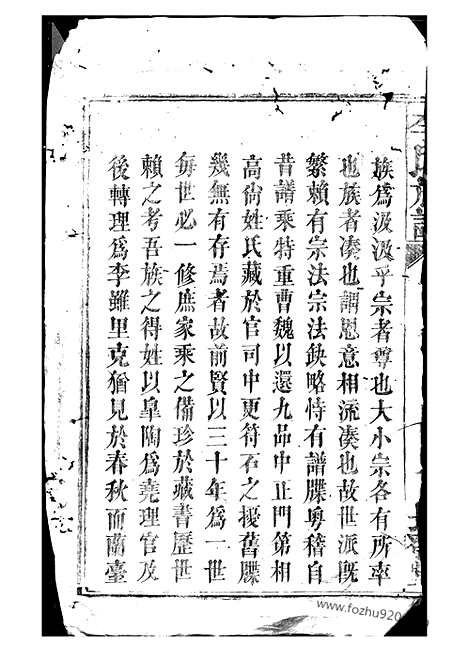 族為汲汲乎宗者尊也大小宗各有所率
也族者湊也謂恩意相流湊也故世派既
繁賴有宗法宗法缺略恃有譜牒粵稽自
昔譜乘特重曹魏以還九品中正門第相
高尙姓氏藏於官司中更符石之擾舊牒
幾無有存焉者故前賢以三十年為一世
每世必一修庶家乘之備珍於藏書歷世
賴之考吾族之得姓以皐陶為堯理官及
後轉理為李雖里克猶見於春秋而蘭臺
www.fozhu920